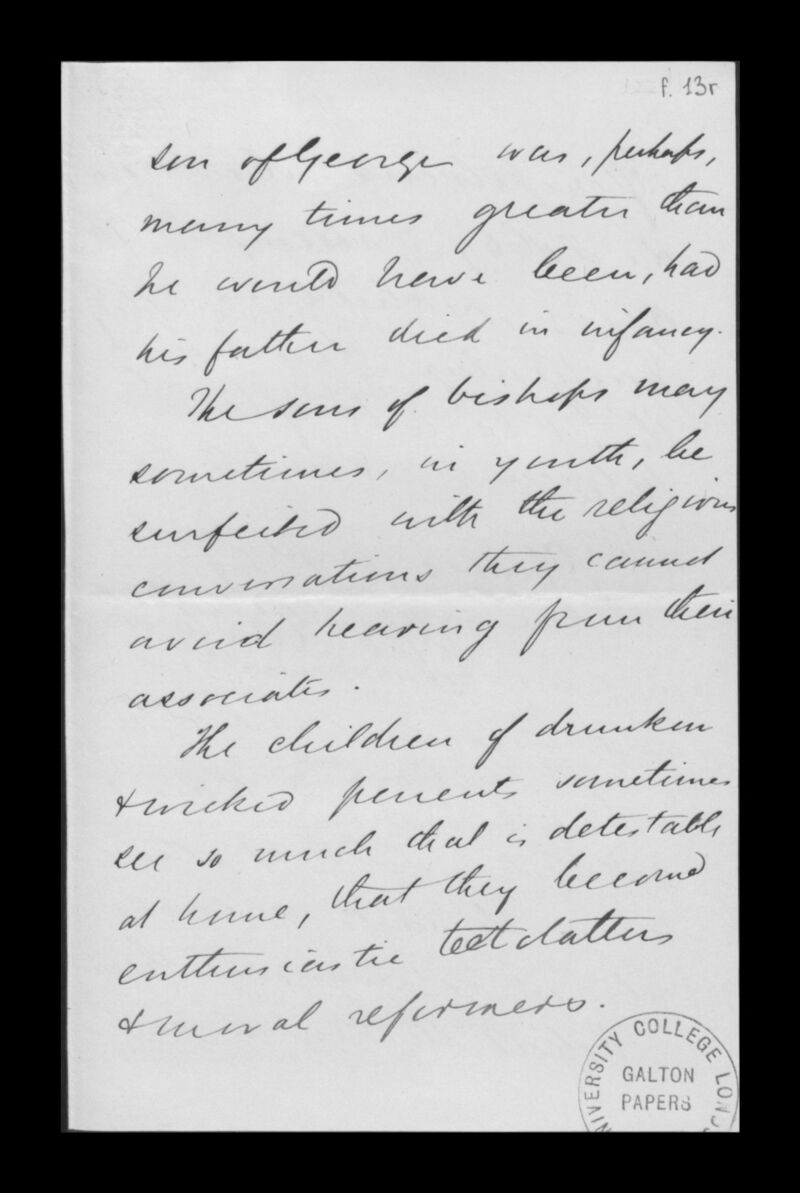 f. 13r
son of George was, perhaps,
many times greater than
he would have been, had
his father died in infancy.
The sons of bishops may
sometimes, in youth, be
surfeited with the religious
conversations they cannot
avoid hearing from their
associates.
The children of drunken
& wicked parents sometimes
see so much that is detestable
at home, that they become
enthusiastic
& moral reformers.
UNIVERSITY COLLEGE LONDON
GALTON
PAPERS